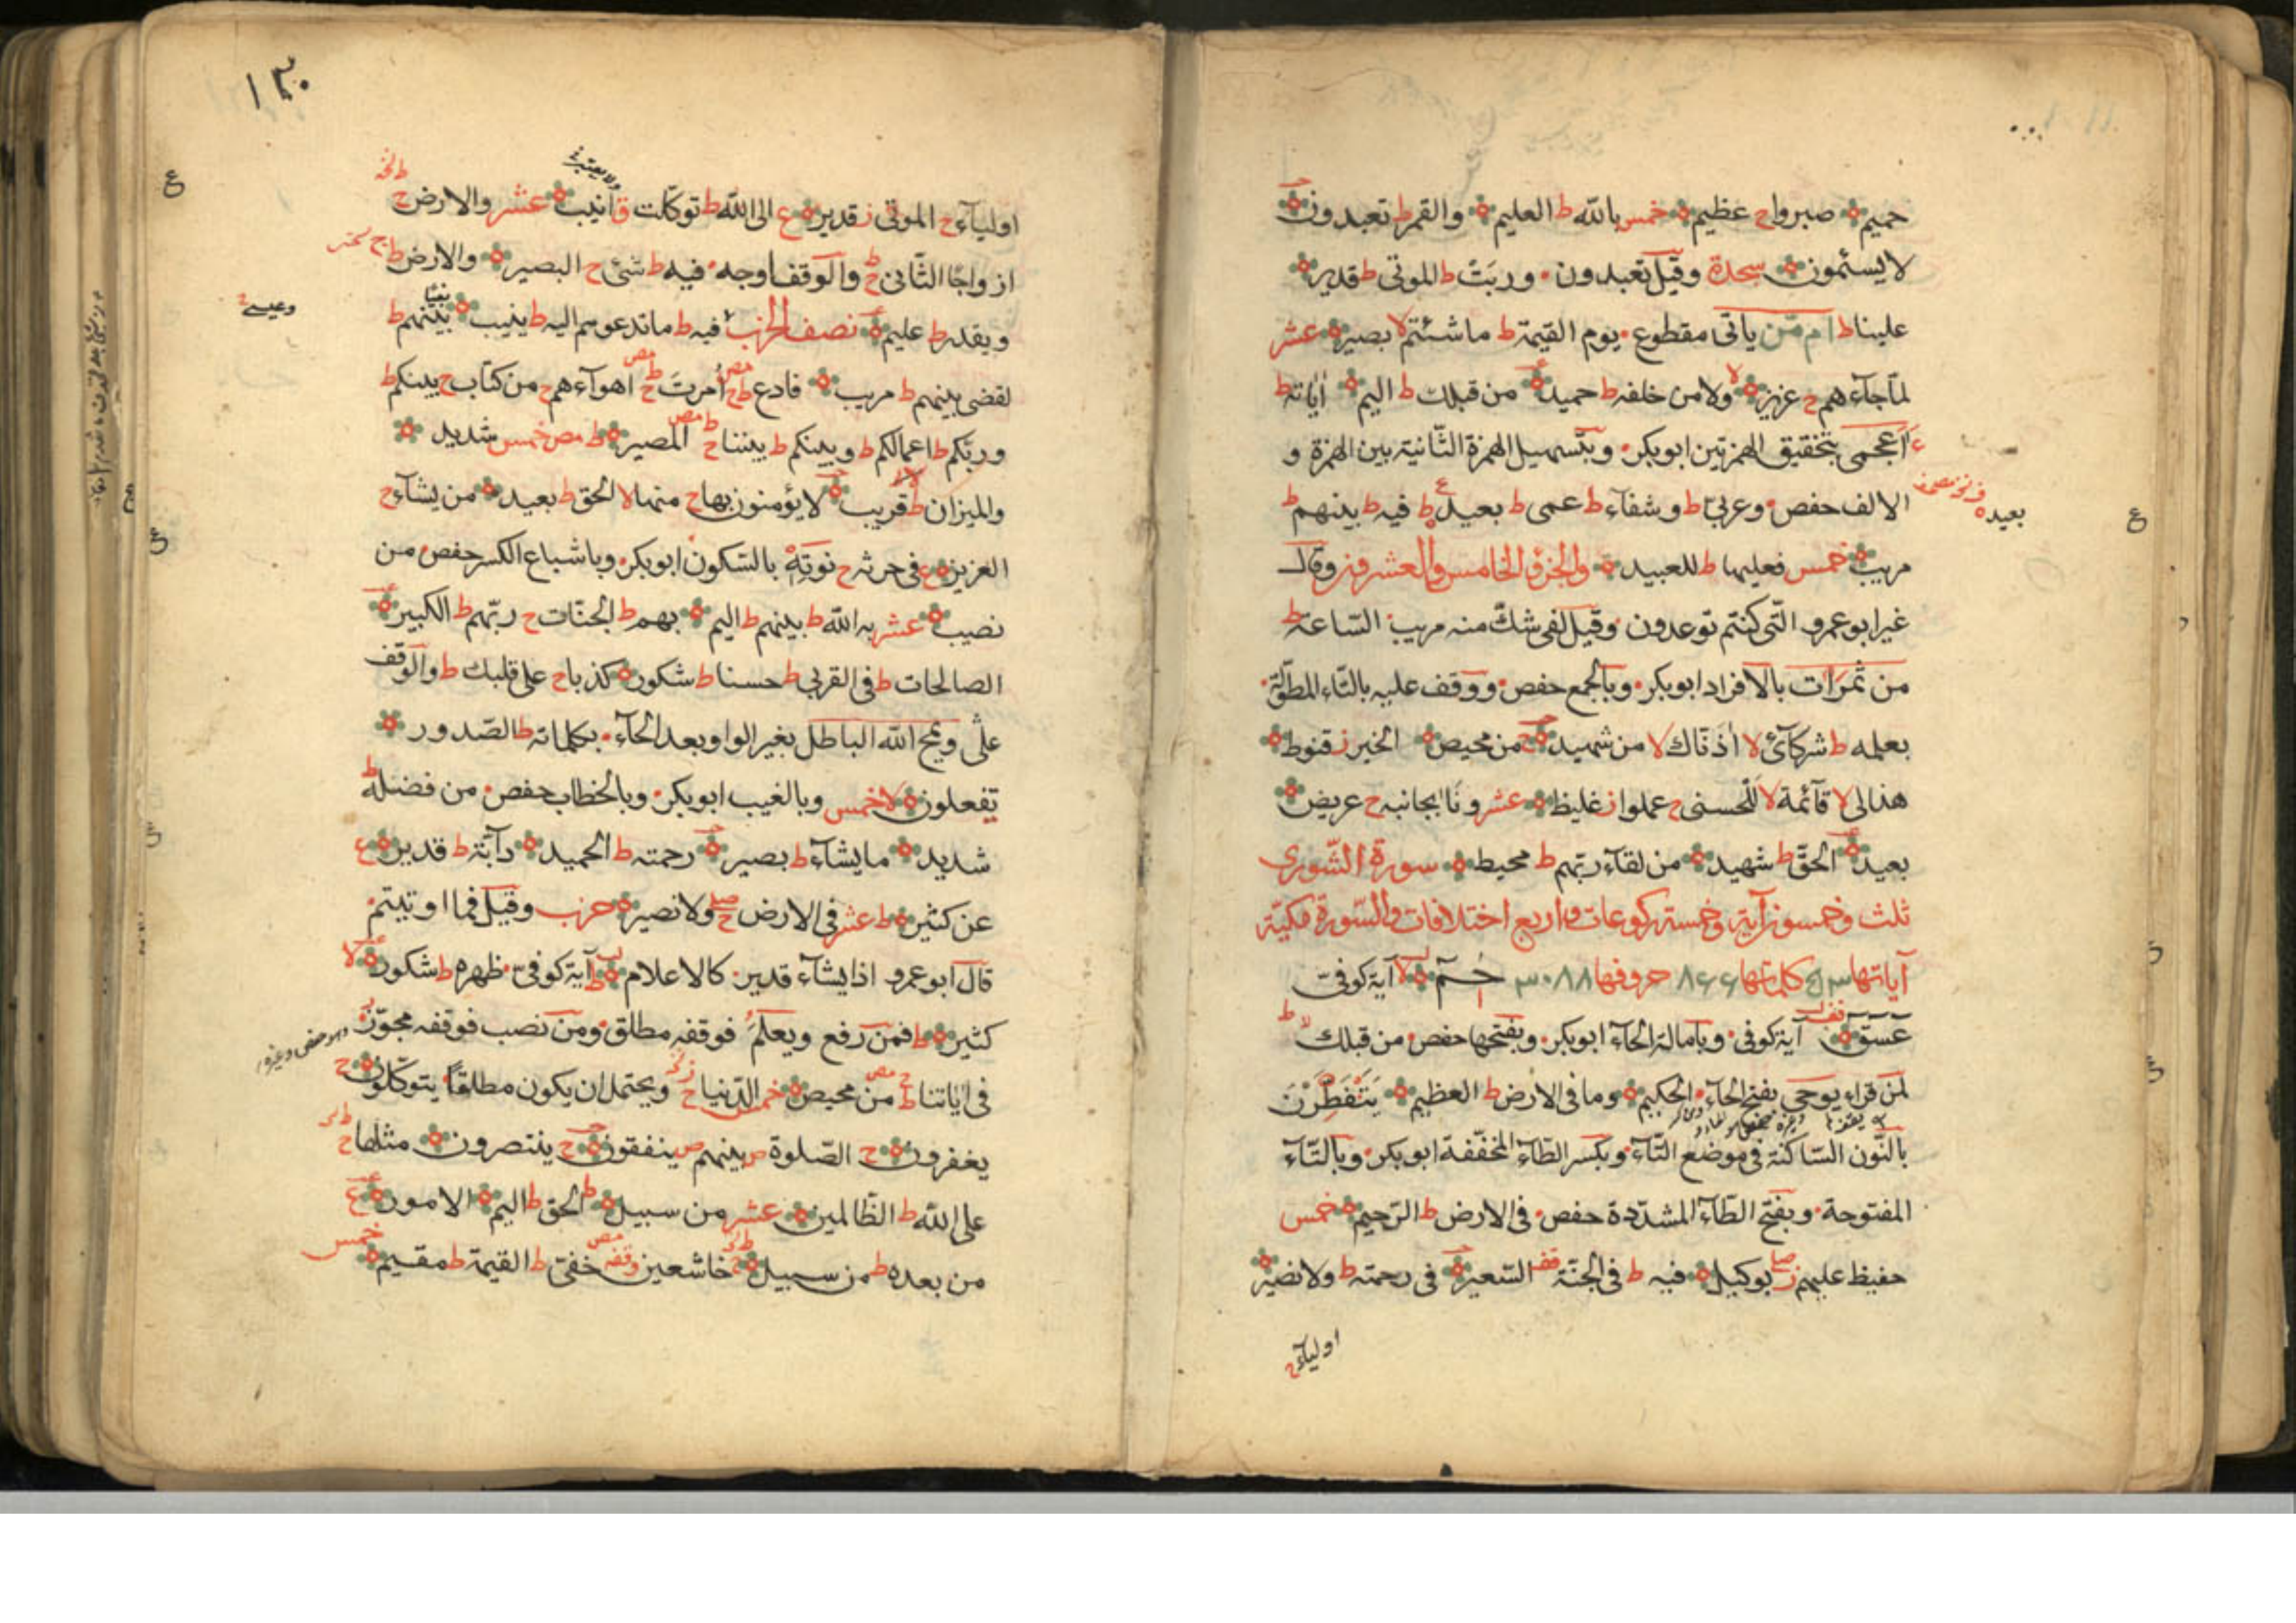 حميم صبرواح عظيم خمس بالله ط العليم والقمر ط تعبدون
لا يسئمون سجدة وقيل تعبدون وربت ط الموتى ط قدير
علينا ط ام من ياتى مقطوع يوم القيمة ط ما شئتم لا بصير عشر
لما جاءهم ح عزيز لا ولا من خلفه ط حميد من قبلك ط اليم آياته ط
ءاعجمى بتحقيق الهمزتين ابوبكر وبتسهيل الهمزة الثانية بين الهمزة و
الالف حفص وعربى ط وشفاء ط عمى ط بعيد ط فيه ط بينهم ط
بعيد
مريب خمس فعليها ط للعبيد والجزؤ الخامس والعشرون وقال
غير ابو عمرو التى كنتم توعدون وقيل لفى شك منه مريب الساعة ط
من ثمرات بالافراد ابوبكر وبالجمع حفص ووقف عليه بالتاء المطولة
بعلمه ط شركائى لا آذناك لا من شهيد ح من محيص الخير ز قنوط
هذا لى لا قائمة لا للحسنى ح عملوا ز غليظ عشر ونا بجانبه ح عريض
بعيد الحق ط شهيد من لقاء ربهم ط محيط سورة الشورى
ثلث وخمسون آية وخمسة ركوعات واربع اختلافات والسورة مكية
آياتها ٥٣ كلماتها ٨٦٦ حروفها ٣٠٨٨ حم لا آية كوفى
عسق آية كوفى وبامالة الحاء ابوبكر وبفتحها حفص من قبلك لا
لمن قراء يوحى بفتح الحاء الحكيم وما فى الارض ط العظيم يتفطرن
بالنون الساكنة فى موضع التاء وبكسر الطاء المخففة ابوبكر وبالتاء
المفتوحة وبفتح الطاء المشددة حفص فى الارض ط الرحيم خمس
حفيظ عليهم ز بوكيل فيه ط فى الجنة قف السعير فى رحمته ط ولا نصير
اولياء ح
١٣٠
اولياء ح الموتى ز قدير ع الى الله ط توكلت ق انيب عشر والارض ح
ازواجا الثانى ح والوقف اوجه فيه ط شئ ح البصير والارض ط ج
ويقدر ط عليم نصف الحزب فيه ط ما تدعوهم اليه ط ينيب بينهم ط
وعيسى
لقضى بينهم ط مريب فادع ط ح امرت ح اهواءهم ح من كتاب ح بينكم ط
وربكم ط اعمالكم ط وبينكم ط بيننا ح المصير ط مص خمس شديد
والميزان ط قريب لا يؤمنون بها ح منها لا الحق ط بعيد من يشاء ح
العزيز ع فى حرثه ح نوته بالسكون ابوبكر وباشباع الكسر حفص من
نصيب عشر به الله ط بينهم ط اليم بهم ط الجنات ح ربهم ط الكبير
الصالحات ط فى القربى ط حسنا ط شكور كذبا ح على قلبك ط والوقف
على ويمح الله الباطل بغير الواو بعد الحاء بكلماته ط الصدور
تفعلون لا خمس وبالغيب ابوبكر وبالخطاب حفص من فضله ط
شديد ما يشاء ط بصير رحمته ط الحميد دابة ط قدير ع
عن كثير ط عشر فى الارض ح صلى ولا نصير حزب وقيل فما اوتيتم
قال ابو عمرو اذا يشاء قدير كالاعلام ط آية كوفى ظهره ط شكور لا
كثير ط فمن رفع ويعلم فوقفه مطلق ومن نصب فوقفه مجوز
فى آياتنا ط من محيص خمس الدنيا ح ويحتمل ان يكون مطلقا يتوكلون ح
يغفرون ح الصلوة ص بينهم ص ينفقون ح ينتصرون مثلها ح
على الله ط الظالمين عشر من سبيل ط الحق ط اليم الامور ع
من بعده ط من سبيل ح خاشعين وقفه خفى ط القيمة ط مقيم خمس